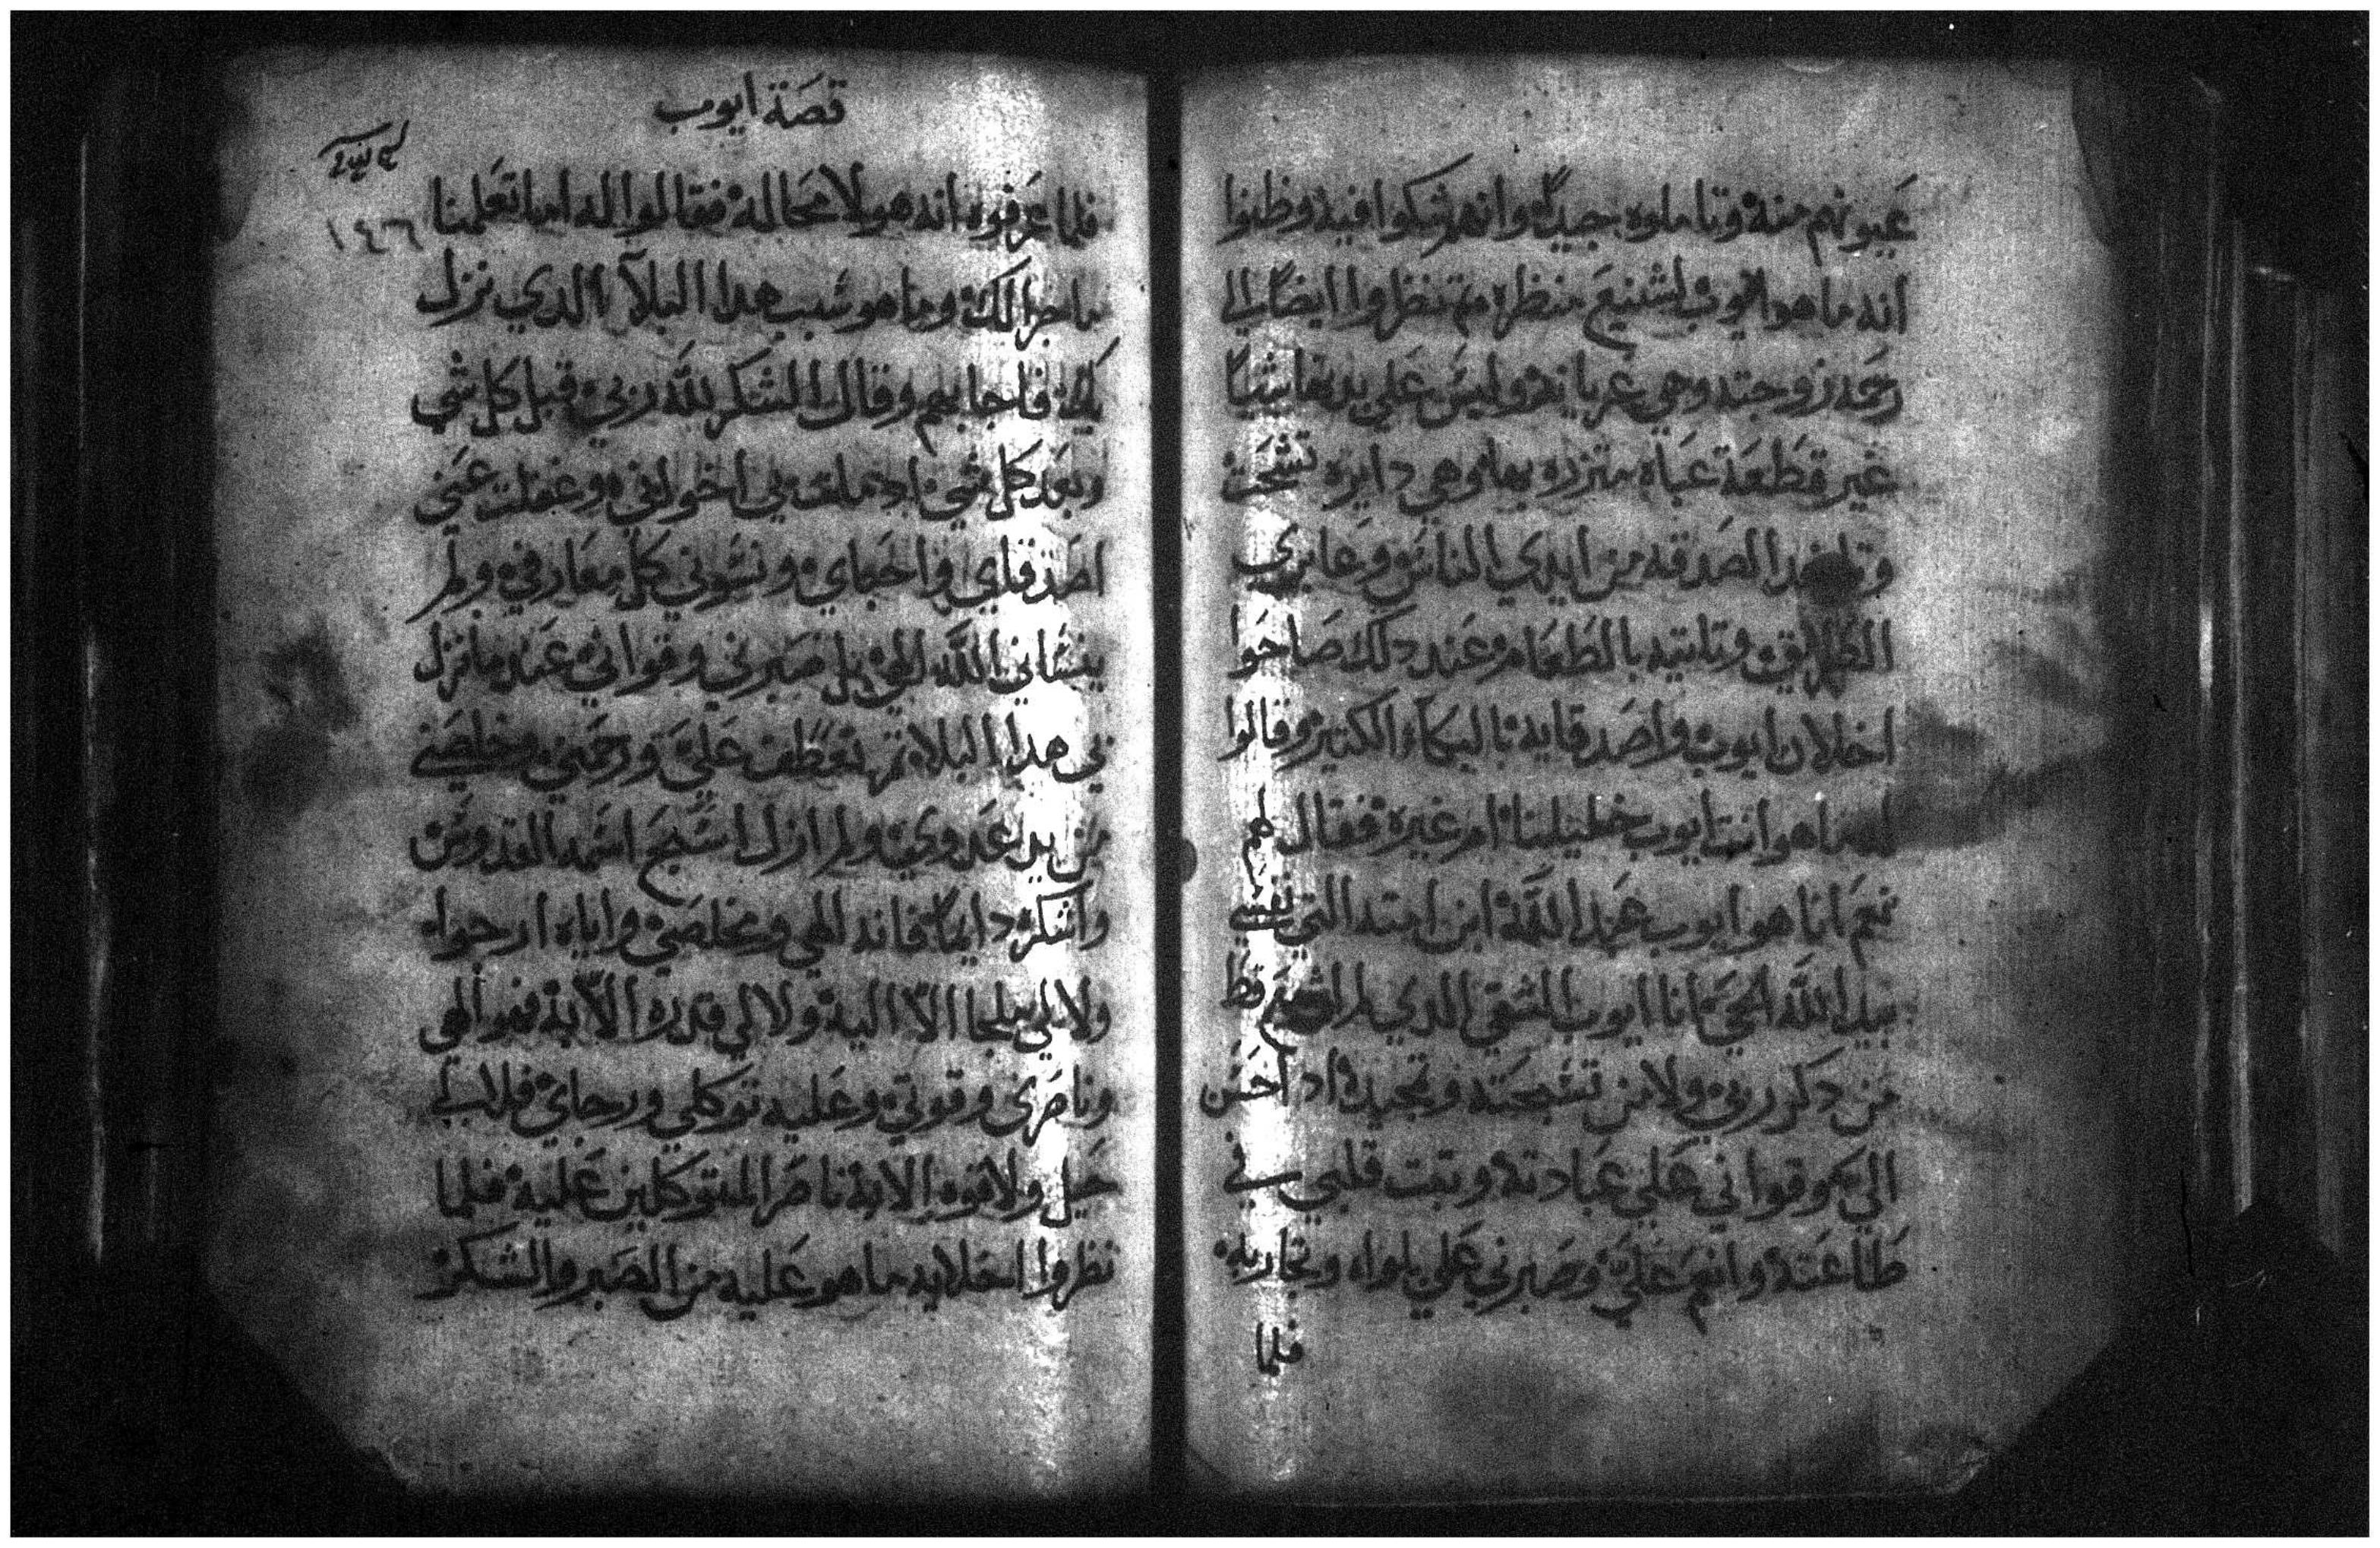 عيونهم منه وتاملوه جيداً وانهم شكوا فيه وظنوا
انه ما هو ايوب اشنيع منظره ثم تنظروا ايضاً الي
رحمه زوجته وهي عريانه وليس علي بدنها شياً
غير قطعة عباه متزره بها وهي دايره تشحت
وتاخد الصدقه من ايدي الناس وعابري
الطريق وتاتيه بالطعام وعند دلك صاحوا
اخلان ايوب واصدقايه بالبكاء الكتير وقالوا
ما هو انت ايوب خليلنا ام غيره فقال لهم
نعم انا هو ايوب عبد الله ابن امته التي نفسي
بيد الله الحي انا ايوب الشقي الدي لم اشبع قط
من دكر ربي ولا من تسبحته وتجيده اد احسن
الي وقواني علي عبادته وتبت قلبي في
طاعته وانعم عليّ وصبرني علي بلواه وتجاربه
فلما
قصة ايوب
١٤٦
فلما عرفوه انه هو لا محاله فقالوا له اما تعلمنا
ما جرا لك وما هو سبب هدا البلآء الدي نزل
بك فاجابهم وقال الشكر لله ربي قبل كل شي
وبعد كل شي وغفلت عني
اصدقاي واحباي ونسوني كل معارفي ولم
ينساني الله الهي بل صبرني وقواني عند ما نزل
بي هدا البلا ثم تعطف عليّ ورحمني وخلصني
من يد عدوي ولم ازل اسبح اسمه القدوس
واشكره دايماً فانه الهي ومخلصي واياه ارجوا
ولا لي ملجا الاّ اليه ولا لي قدره الاّ به فهو الهي
وناصري وقوتي وعليه توكلي ورجاي فلا لي
حيل ولا قوه الا به ناصر المتوكلين عليه فلما
نظروا اخلايه ما هو عليه من الصبر والشكر